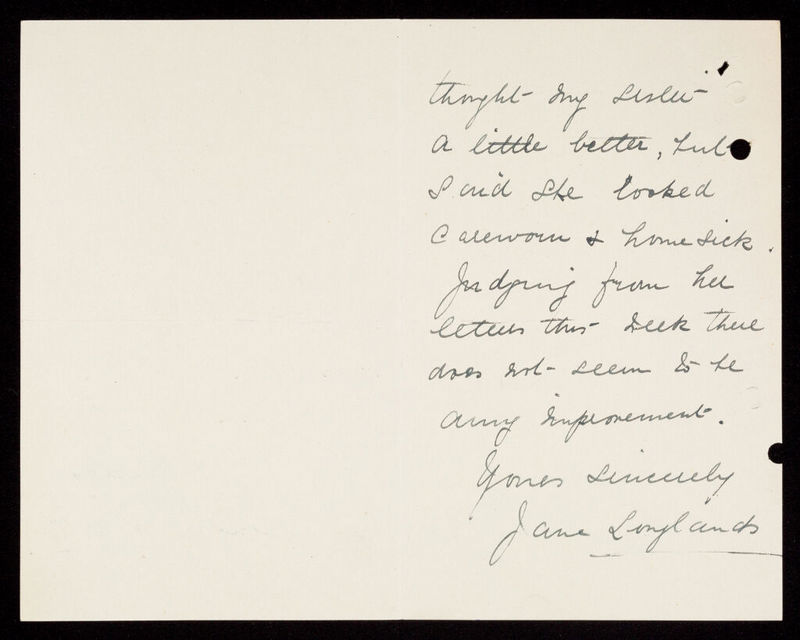 thought my sister
a little better, but
said she looked
careworn & homesick.
Judging from her
letters this week there
does not seem to be
any improvement.
Yours sincerely
Jane Longlands